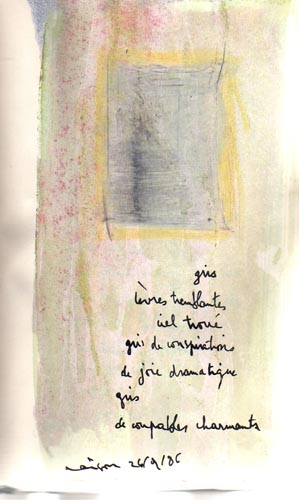 gris
lèvres tremblantes
ciel troué
gris de conspirations
de joie dramatique
gris
de coupables charmants
26/9/86